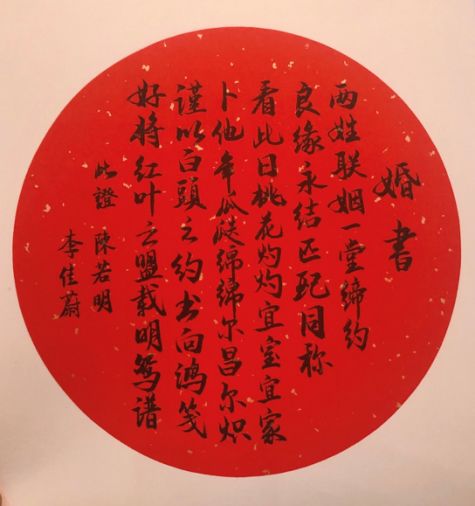 婚书
两姓联姻一堂缔约
良缘永结匹配同称
看此日桃花灼灼宜室宜家
卜他年瓜瓞绵绵尔昌尔炽
谨以白頭之约书向鸿笺
好将红叶之盟载明鸳谱
此證 陳若明
李佳蔚